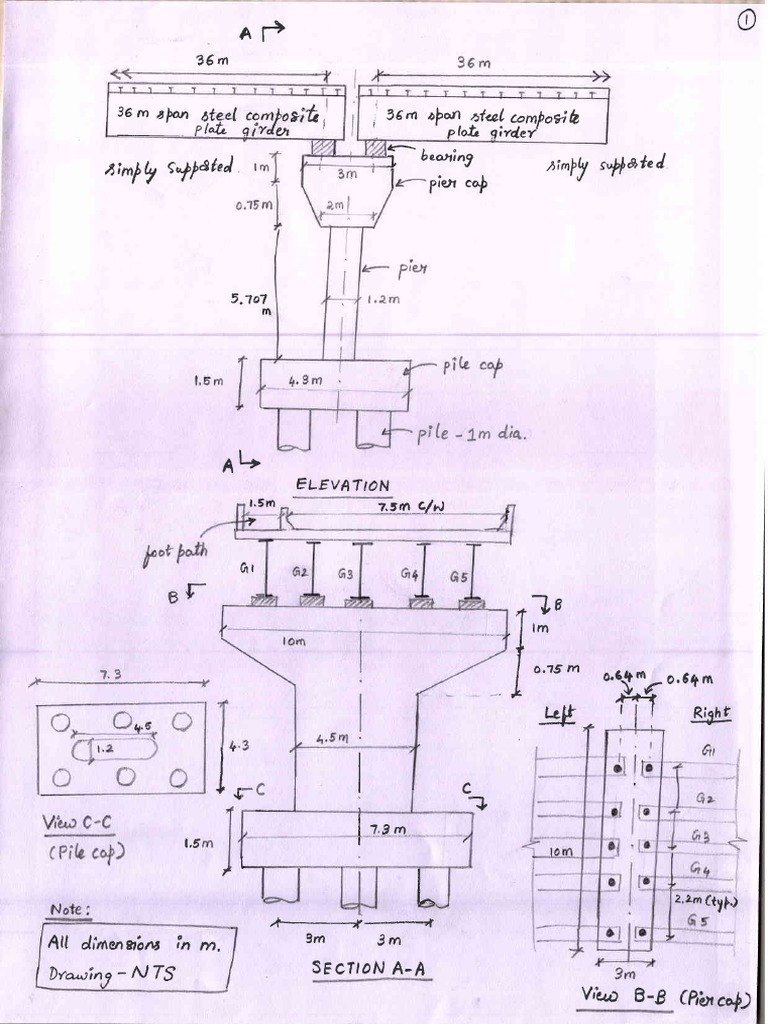 1
A
36 m
36 m
36 m span steel composite
plate girder
36 m span steel composite
plate girder
bearing
simply supported
simply supported
1m
3m
pier cap
0.75 m
2m
pier
5.707
m
1.2m
pile cap
1.5 m
4.3m
pile - 1m dia.
A
ELEVATION
1.5m
7.5m C/W
foot path
G1
G2
G3
G4
G5
B
B
10m
1m
0.75 m
7.3
0.64m
0.64 m
Left
Right
4.5
1.2
4.3
4.5m
G1
G2
C
C
View C-C
(Pile cap)
1.5m
7.3 m
10m
G3
G4
2.2m (typ.)
G5
Note:
All dimensions in m.
Drawing - NTS
3m
3m
SECTION A-A
3m
View B-B (Pier cap)